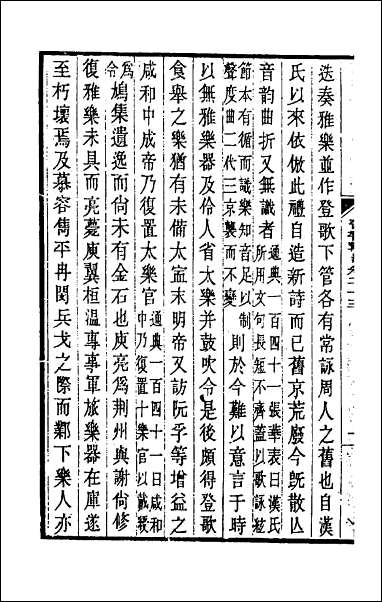 迭奏雅樂並作登歌下管各有常詠周人之舊也自漢
氏以來依倣此禮自造新詩而已舊京荒廢今旣散亾
音韵曲折又無識者通典一百四十一張華表曰漢氏所用文句長短不齊蓋以歌詠絃
節本有循而識樂知音足以制聲度曲二代三京襲而不變則於今難以意言于時
以無雅樂器及伶人省太樂并鼓吹令是後頗得登歌
食舉之樂猶有未備太寧末明帝又訪阮孚等增益之
咸和中成帝乃復置太樂官通典一百四十一曰咸和中乃復置十樂官以戴綬
爲令鳩集遺逸而尚未有金石也庾亮爲荆州與謝尚修
復雅樂未具而亮薨庾翼桓溫專事軍旅樂器在庫遂
至朽壞焉及慕容儁平冉閔兵戈之際而鄴下樂人亦